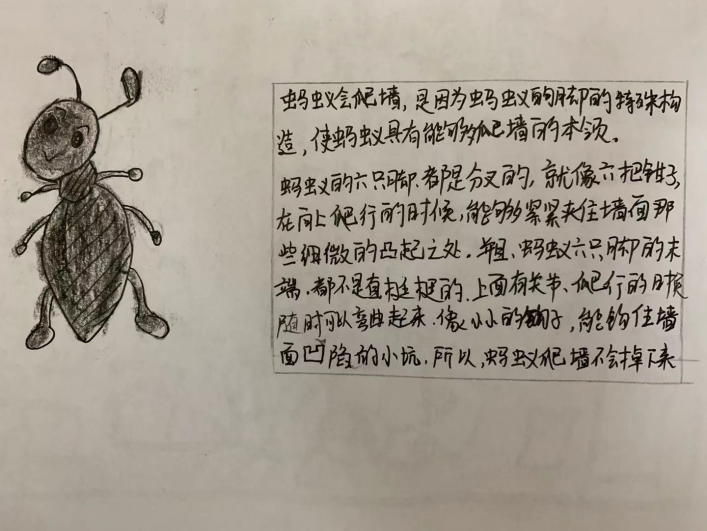 蚂蚁会爬墙，是因为蚂蚁的脚的特殊构
造，使蚂蚁具有能够爬墙的本领。
蚂蚁的六只脚，都是分叉的，就像六把钳子，
在向上爬行的时候，能够紧紧夹住墙面那
些细微的凸起之处。并且、蚂蚁六只脚的末
端，都不是直挺挺的、上面有关节、爬行的时候
随时可以弯曲起来．像小小的钩子，能钩住墙
面凹陷的小坑．所以，蚂蚁爬墙不会掉下来